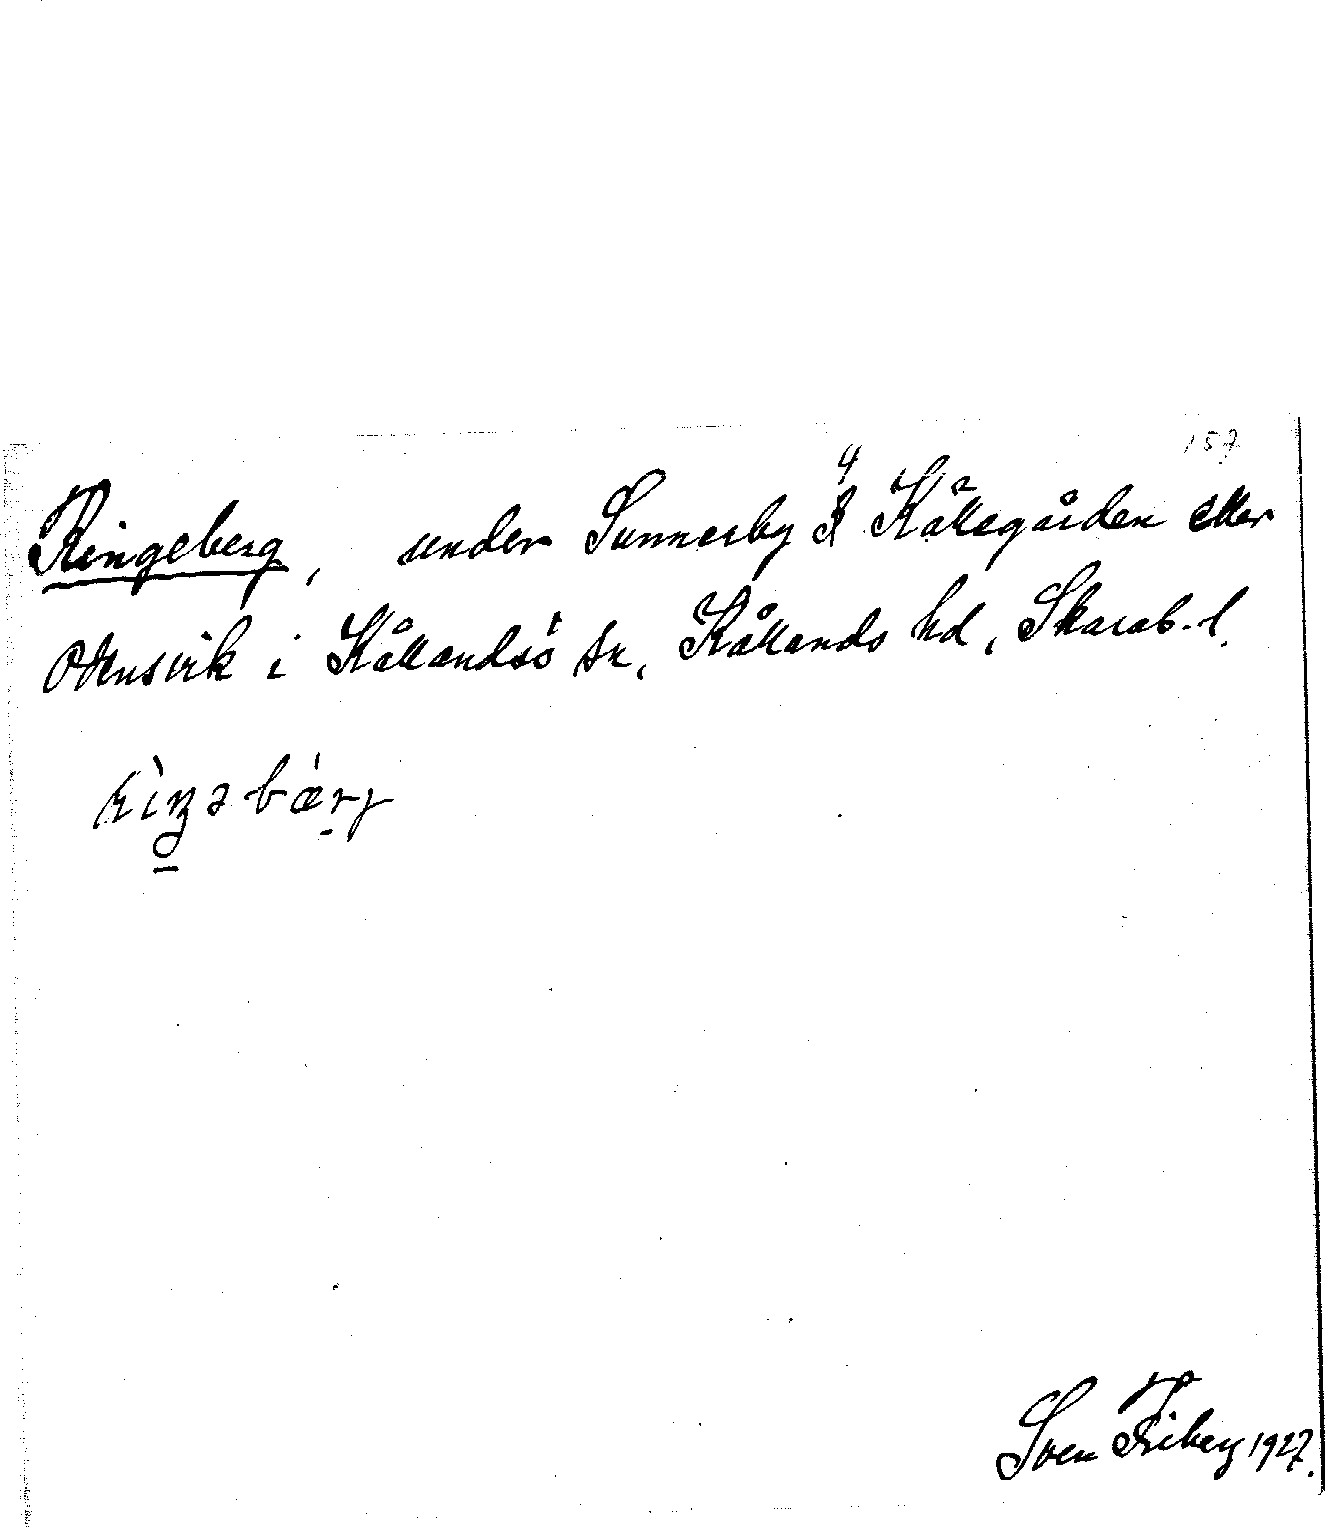 157
Ringeberg, under Sunnersby 4 Källegården eller
Otensvik i Kållandsö sn, Kållands hd, Skarab. l.
Sven Friberg 1927.